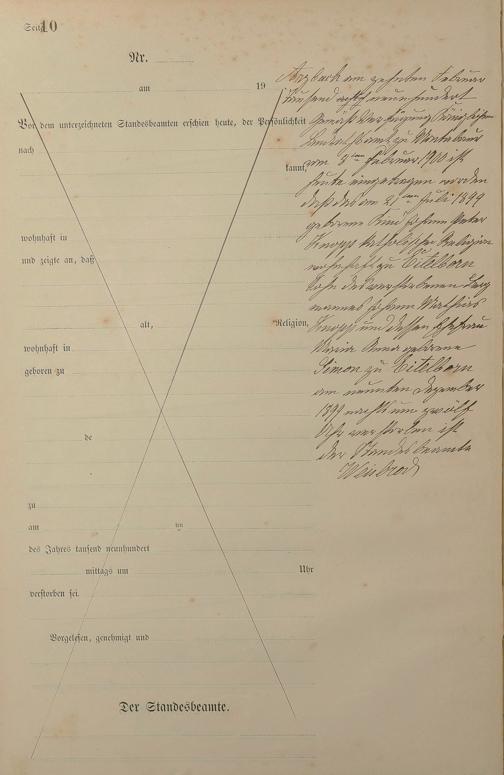 Seite 10
Nr.
am 19
Vor dem unterzeichneten Standesbeamten erschien heute, der Persönlichkeit
nach
kannt,
wohnhaft in
und zeigte an, daß
alt, Religion,
wohnhaft in
geboren zu
de
zu
am ten
des Jahres tausend neunhundert
mittags um Uhr
verstorben sei.
Vorgelesen, genehmigt und
Der Standesbeamte.
Arzbach am zehnten Februar
tausend neunhundert
Gemäß Verfügung Königlichen
Landrathsamt zu Montabaur
vom 8ten Februar 1900 ist
heute eingetragen worden
daß das am 21ten Juli 1899
geborene Kind Johann Peter
Knopp katholischer Religion
wohnhaft zu Eitelborn
Sohn des verstorbenen Berg
mannes Johann Mathias
Knopp und dessen Ehefrau
Maria Anna geborene
Simon zu Eitelborn
am neunten Dezember
1899 nachts um zwölf
Uhr verstorben ist
der Standesbeamte
Weisbrod